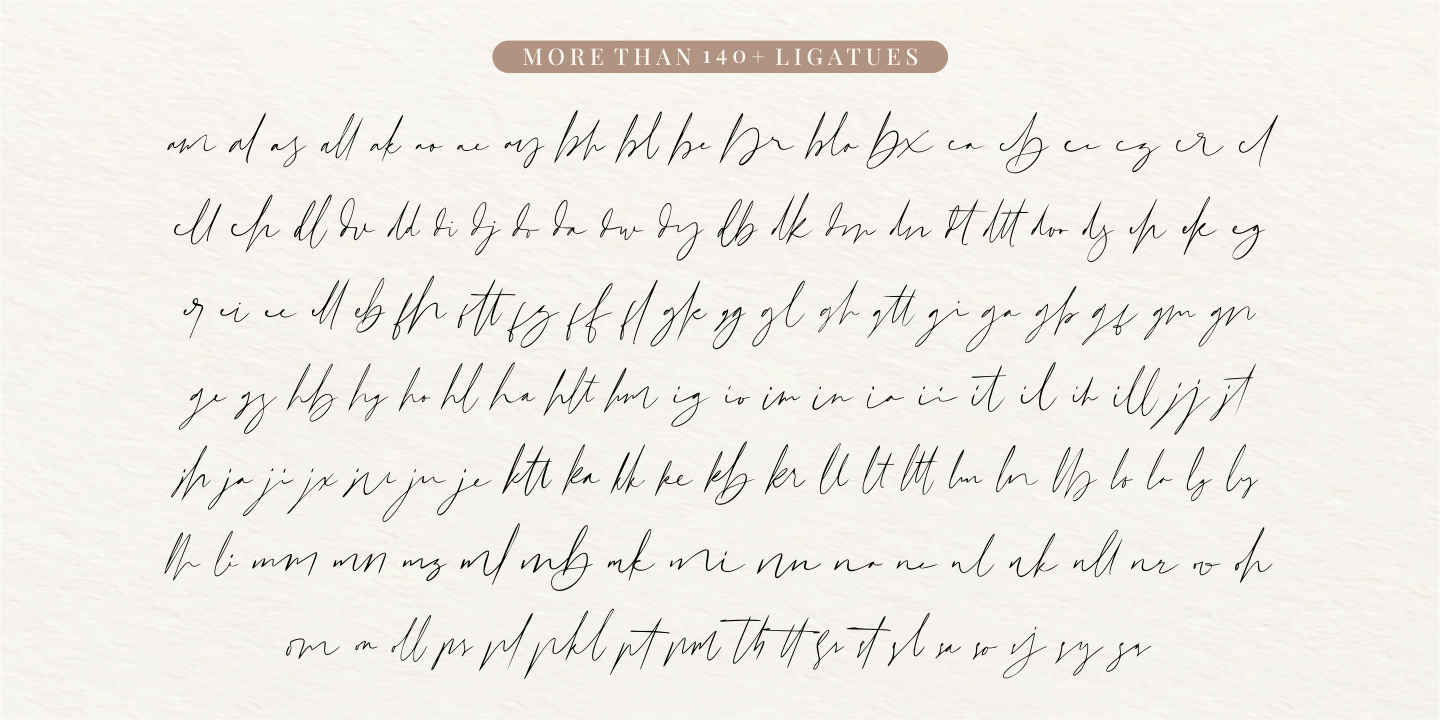 MORE THAN 140+ LIGATUES
am al as all ak ao ae ay bh bl be br blo bx ca cb ce cz cr cl
cll ch dl dv dd di dj do da dw dy db dk dm dn dt dtt doo ds eh ek eg
er ei ee ell eb fh ftt fz ff fl gk gg gl gh gtt gi ga gb gf gm gn
ge gz hb hg ho hl ha hlt hm ig io im in ia ii it il ih ill jj jt
jh ja ji jx je ktt ka kk ke kb kr ll lt ltt lm ln llb lo la ls ly
lh li mm mn mz ml mb mk mi nn na ne nl nk nll nr ov oh
om on oll ps pl pkl pt pm th tt st sl sa so sj sy